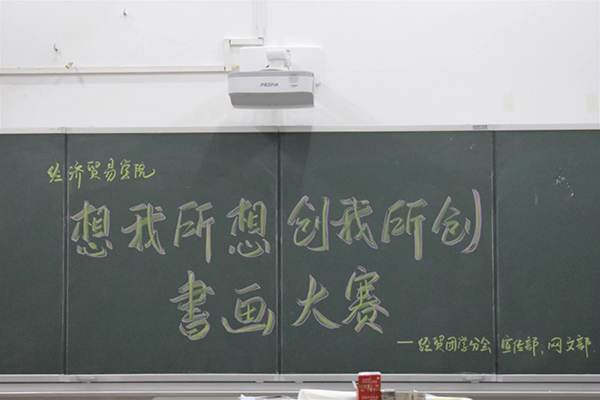 经济贸易学院
想我所想 创我所创
書画大赛
—经贸团学分会 宣传部、网文部